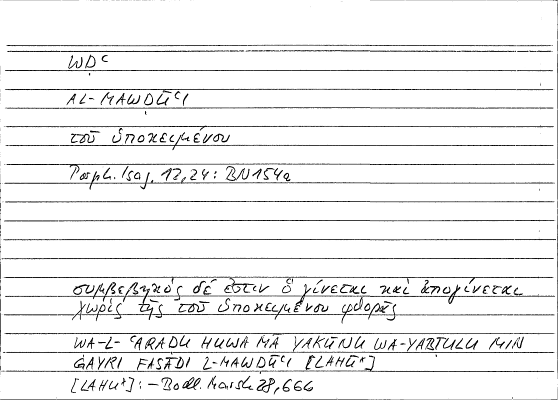 WḌʿ
AL-MAWḌŪʿI
τοῦ ὑποκειμένου
Porph. Isag. 12,24: BN154a
συμβεβηκός δέ ἐστιν ὃ γίνεται καὶ ἀπογίνεται
χωρὶς τῆς τοῦ ὑποκειμένου φθορᾶς
WA-L-ʿARAḌU HUWA MĀ YAKŪNU WA-YABṬULU MIN
ĠAYRI FASĀDI L-MAWḌŪʿI [LAHU*]
[LAHU*]: – Bodl. Marsh 28,666